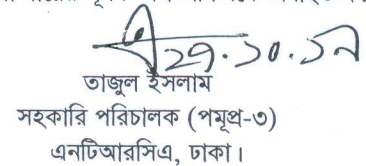 ২৭.১০.১৯
তাজুল ইসলাম
সহকারি পরিচালক (পমূপ্র-৩)
এনটিআরসিএ, ঢাকা।